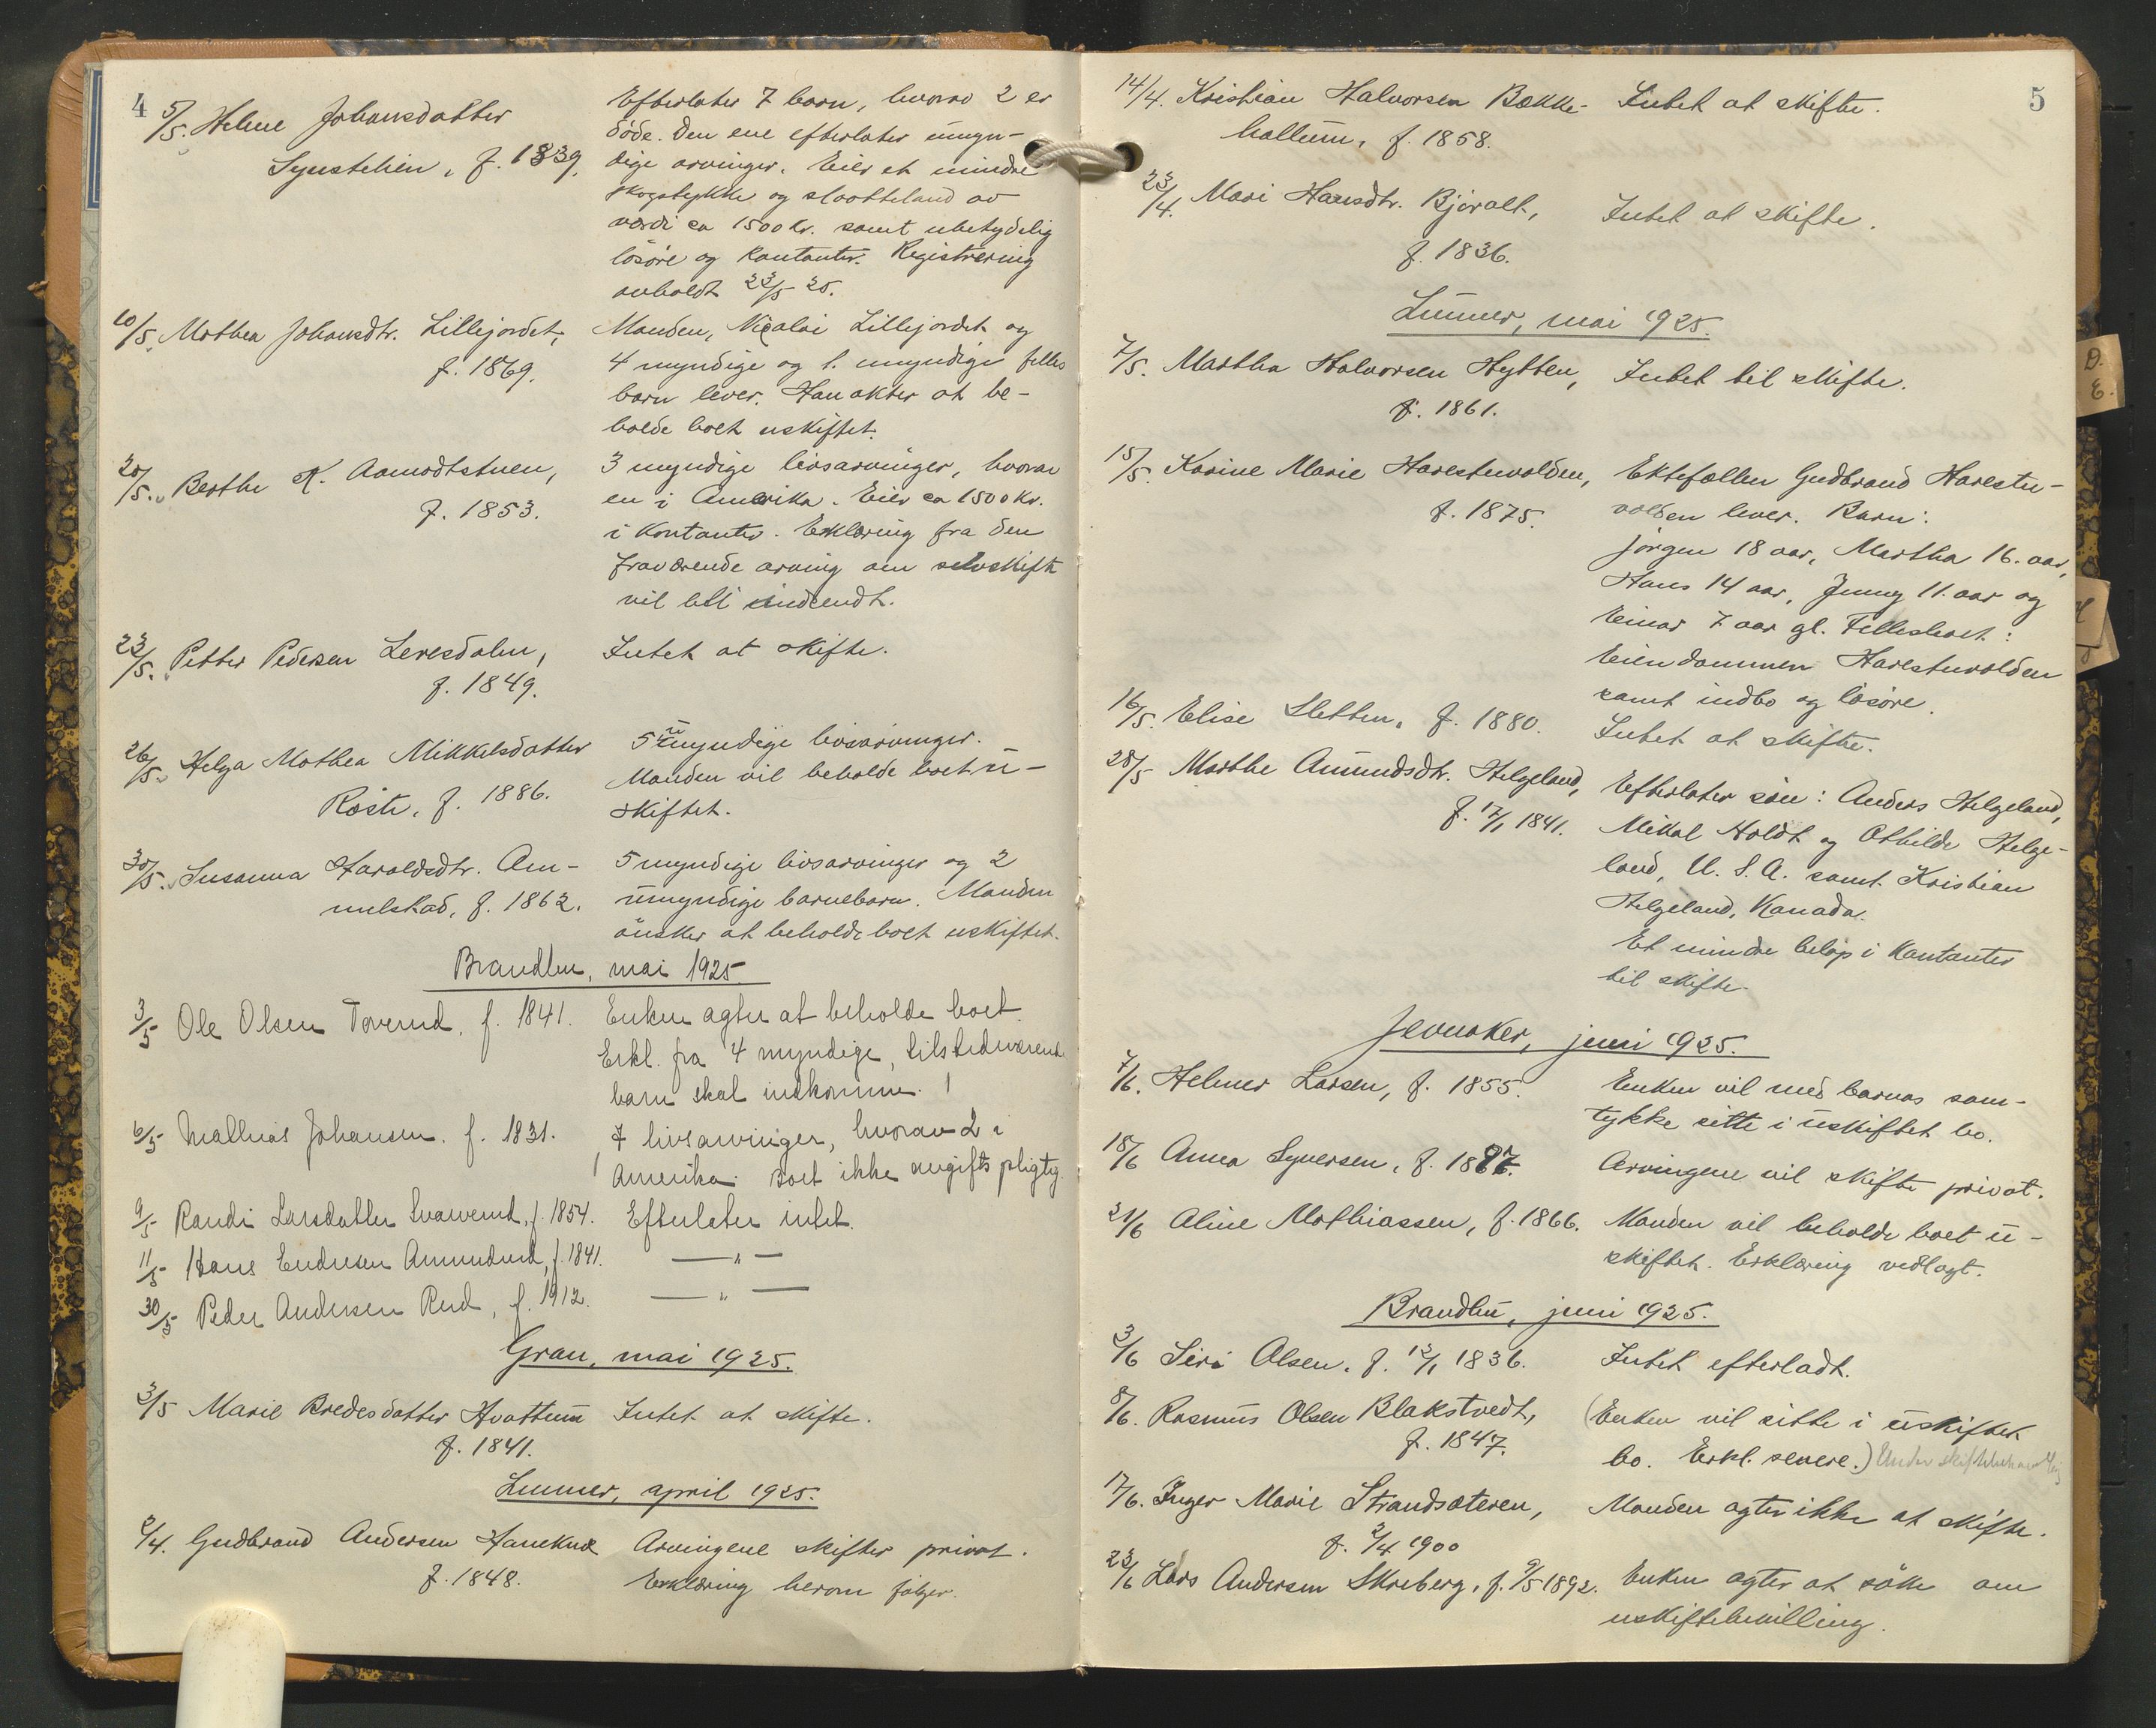 4
5/5. Helene Johansdatter
Synstelien, f. 1839.
Efterlater 7 barn, hvorav 2 er
døde. Den ene efterlater umyn-
dige arvinger. Eier et mindre
skogstykke og slaatteland av
værdi ca 1500 kr. samt ubetydelig
løsøre og kontanter. Registrering
avholdt 23/5 25.
10/5. Mathea Johansdtr. Lillejordet,
f. 1869.
Manden, Nicolai Lillejordet og
4 myndige og 1. umyndige felles
barn lever. Han akter at be-
holde boet uskiftet.
20/5. Berthe K. Aamodtstuen,
f. 1853.
3 myndige livsarvinger, hvorav
en i Amerika. Eier ca 1500 kr.
i kontanter. Erklæring fra den
fraværende arving om selvskifte
vil bli indsendt.
23/5. Petter Pedersen Leresdalen,
f. 1849.
Intet at skifte.
26/5. Helga Mathea Mikkelsdatter
Røste, f. 1886.
5 umyndige livsarvinger.
Manden vil beholde boet u-
skiftet.
30/5. Susanna Haraldsdtr. Am-
melstad, f. 1862.
5 myndige livsarvinger og 2
umyndige barnebarn. Manden
ønsker at beholde boet uskiftet.
Brandbu, mai 1925.
3/5 Ole Olsen Toverud, f. 1841.
Enken agter at beholde boet.
Erkl. fra 4 myndige, tilstedeværende
barn skal indkomme.
6/5 Mathias Johansen. f. 1831.
7 livsarvinger, hvorav 2 i
Amerika. Boet ikke avgiftspligtig.
9/5 Randi Larsdatter Svarverud, f. 1854. Efterlater intet.
11/5 Hans Endresen Amundrud, f. 1841. — " —
30/5 Peder Andersen Rud, f. 1912. — " —
Gran, mai 1925.
3/5 Marie Bredesdatter Hvattum Intet at skifte.
f. 1841.
Lunner, april 1925.
2/4. Gudbrand Andersen Hanekne Arvingene skifter privat.
f. 1848. Erklæring herom følger.
5
14/4. Kristian Halvorsen Bække- Intet at skifte.
hallum, f. 1858.
23/4. Mari Hansdtr. Bjøralt, Intet at skifte.
f. 1836.
Lunner, mai 1925.
7/5. Martha Halvorsen Hytten, Intet til skifte.
f. 1861.
15/5. Karine Marie Harestuvolden,
f. 1875.
Ektefællen Gudbrand Harestu-
volden lever. Barn:
Jørgen 18 aar, Martha 16. aar,
Hans 14 aar, Jenny 11. aar og
Einar 7 aar gl. Fellesboet:
Eiendommen Harestuvolden
samt indbo og løsøre.
16/5. Elise Sletten, f. 1880. Intet at skifte.
28/5 Marthe Amundsdtr. Helgeland,
f. 17/1 1841.
Efterlater søn: Anders Helgeland,
Mikal Holdt og Othilde Helge-
land, U. S. A. samt Kristian
Helgeland, Kanada.
Et mindre beløp i kontanter
til skifte.
Jevnaker, juni 1925.
7/6. Helmer Larsen, f. 1855.
Enken vil med barnas sam-
tykke sitte i uskiftet bo.
18/6 Anna Syversen, f. 1887. Arvingene vil skifte privat.
21/6 Aline Mathiassen, f. 1866. Manden vil beholde boet u-
skiftet. Erklæring vedlagt.
Brandbu, juni 1925.
3/6 Siri Olsen, f. 13/1 1836. Intet efterladt.
8/6. Rasmus Olsen Blakstvedt,
f. 1847.
(Enken vil sitte i uskiftet
bo. Erkl. senere.) Under skiftebehandling
17/6. Inger Marie Strandsæteren,
f. 2/4 1900
Manden agter ikke at skifte.
23/6 Lars Andersen Skreberg, f. 9/5 1892. Enken agter at søke om
uskiftebevilling.
D.
E.